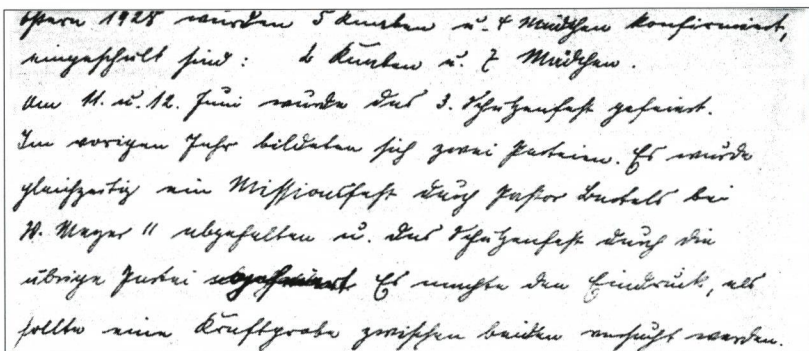 Ostern 1928 wurden 5 Knaben u. 4 Mädchen konfirmiert,
eingeschult sind: 2 Knaben u. 7 Mädchen.
Am 11. u. 12. Juni wurde das 3. Schützenfest gefeiert.
Im vorigen Jahr bildeten sich zwei Parteien. Es wurde
gleichzeitig ein Missionsfest durch Pastor Bartels bei
W. Meyer 11 abgehalten u. das Schützenfest durch die
übrige Partei Es machte den Eindruck, als
sollte eine Kraftprobe zwischen beiden versucht werden.